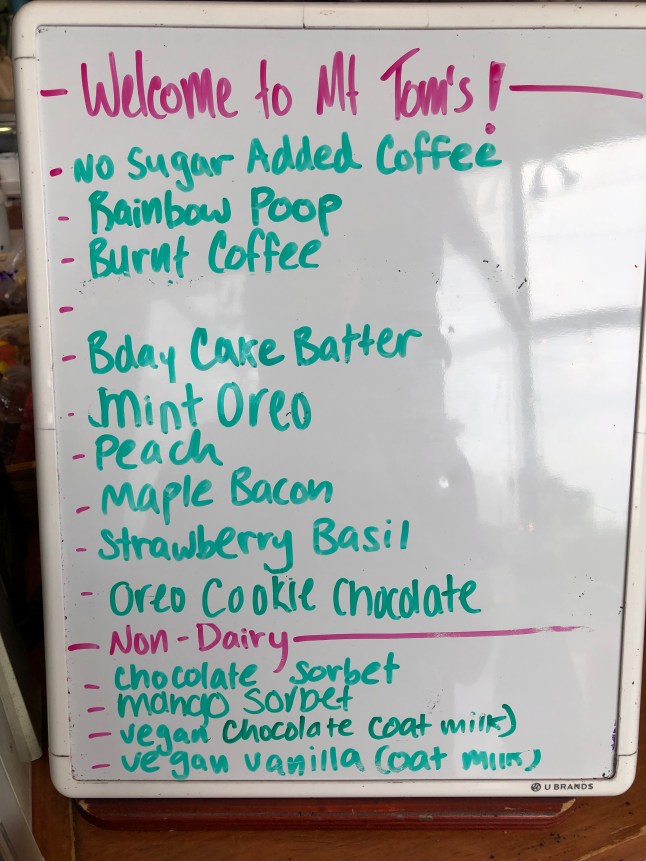 - Welcome to Mt Tom's!
- No Sugar Added Coffee
- Rainbow Poop
- Burnt Coffee
-
- Bday Cake Batter
- Mint Oreo
- Peach
- Maple Bacon
- Strawberry Basil
- Oreo Cookie Chocolate
- Non-Dairy
- chocolate sorbet
- mango sorbet
- vegan chocolate (oat milk)
- vegan vanilla (oat milk)
U BRANDS